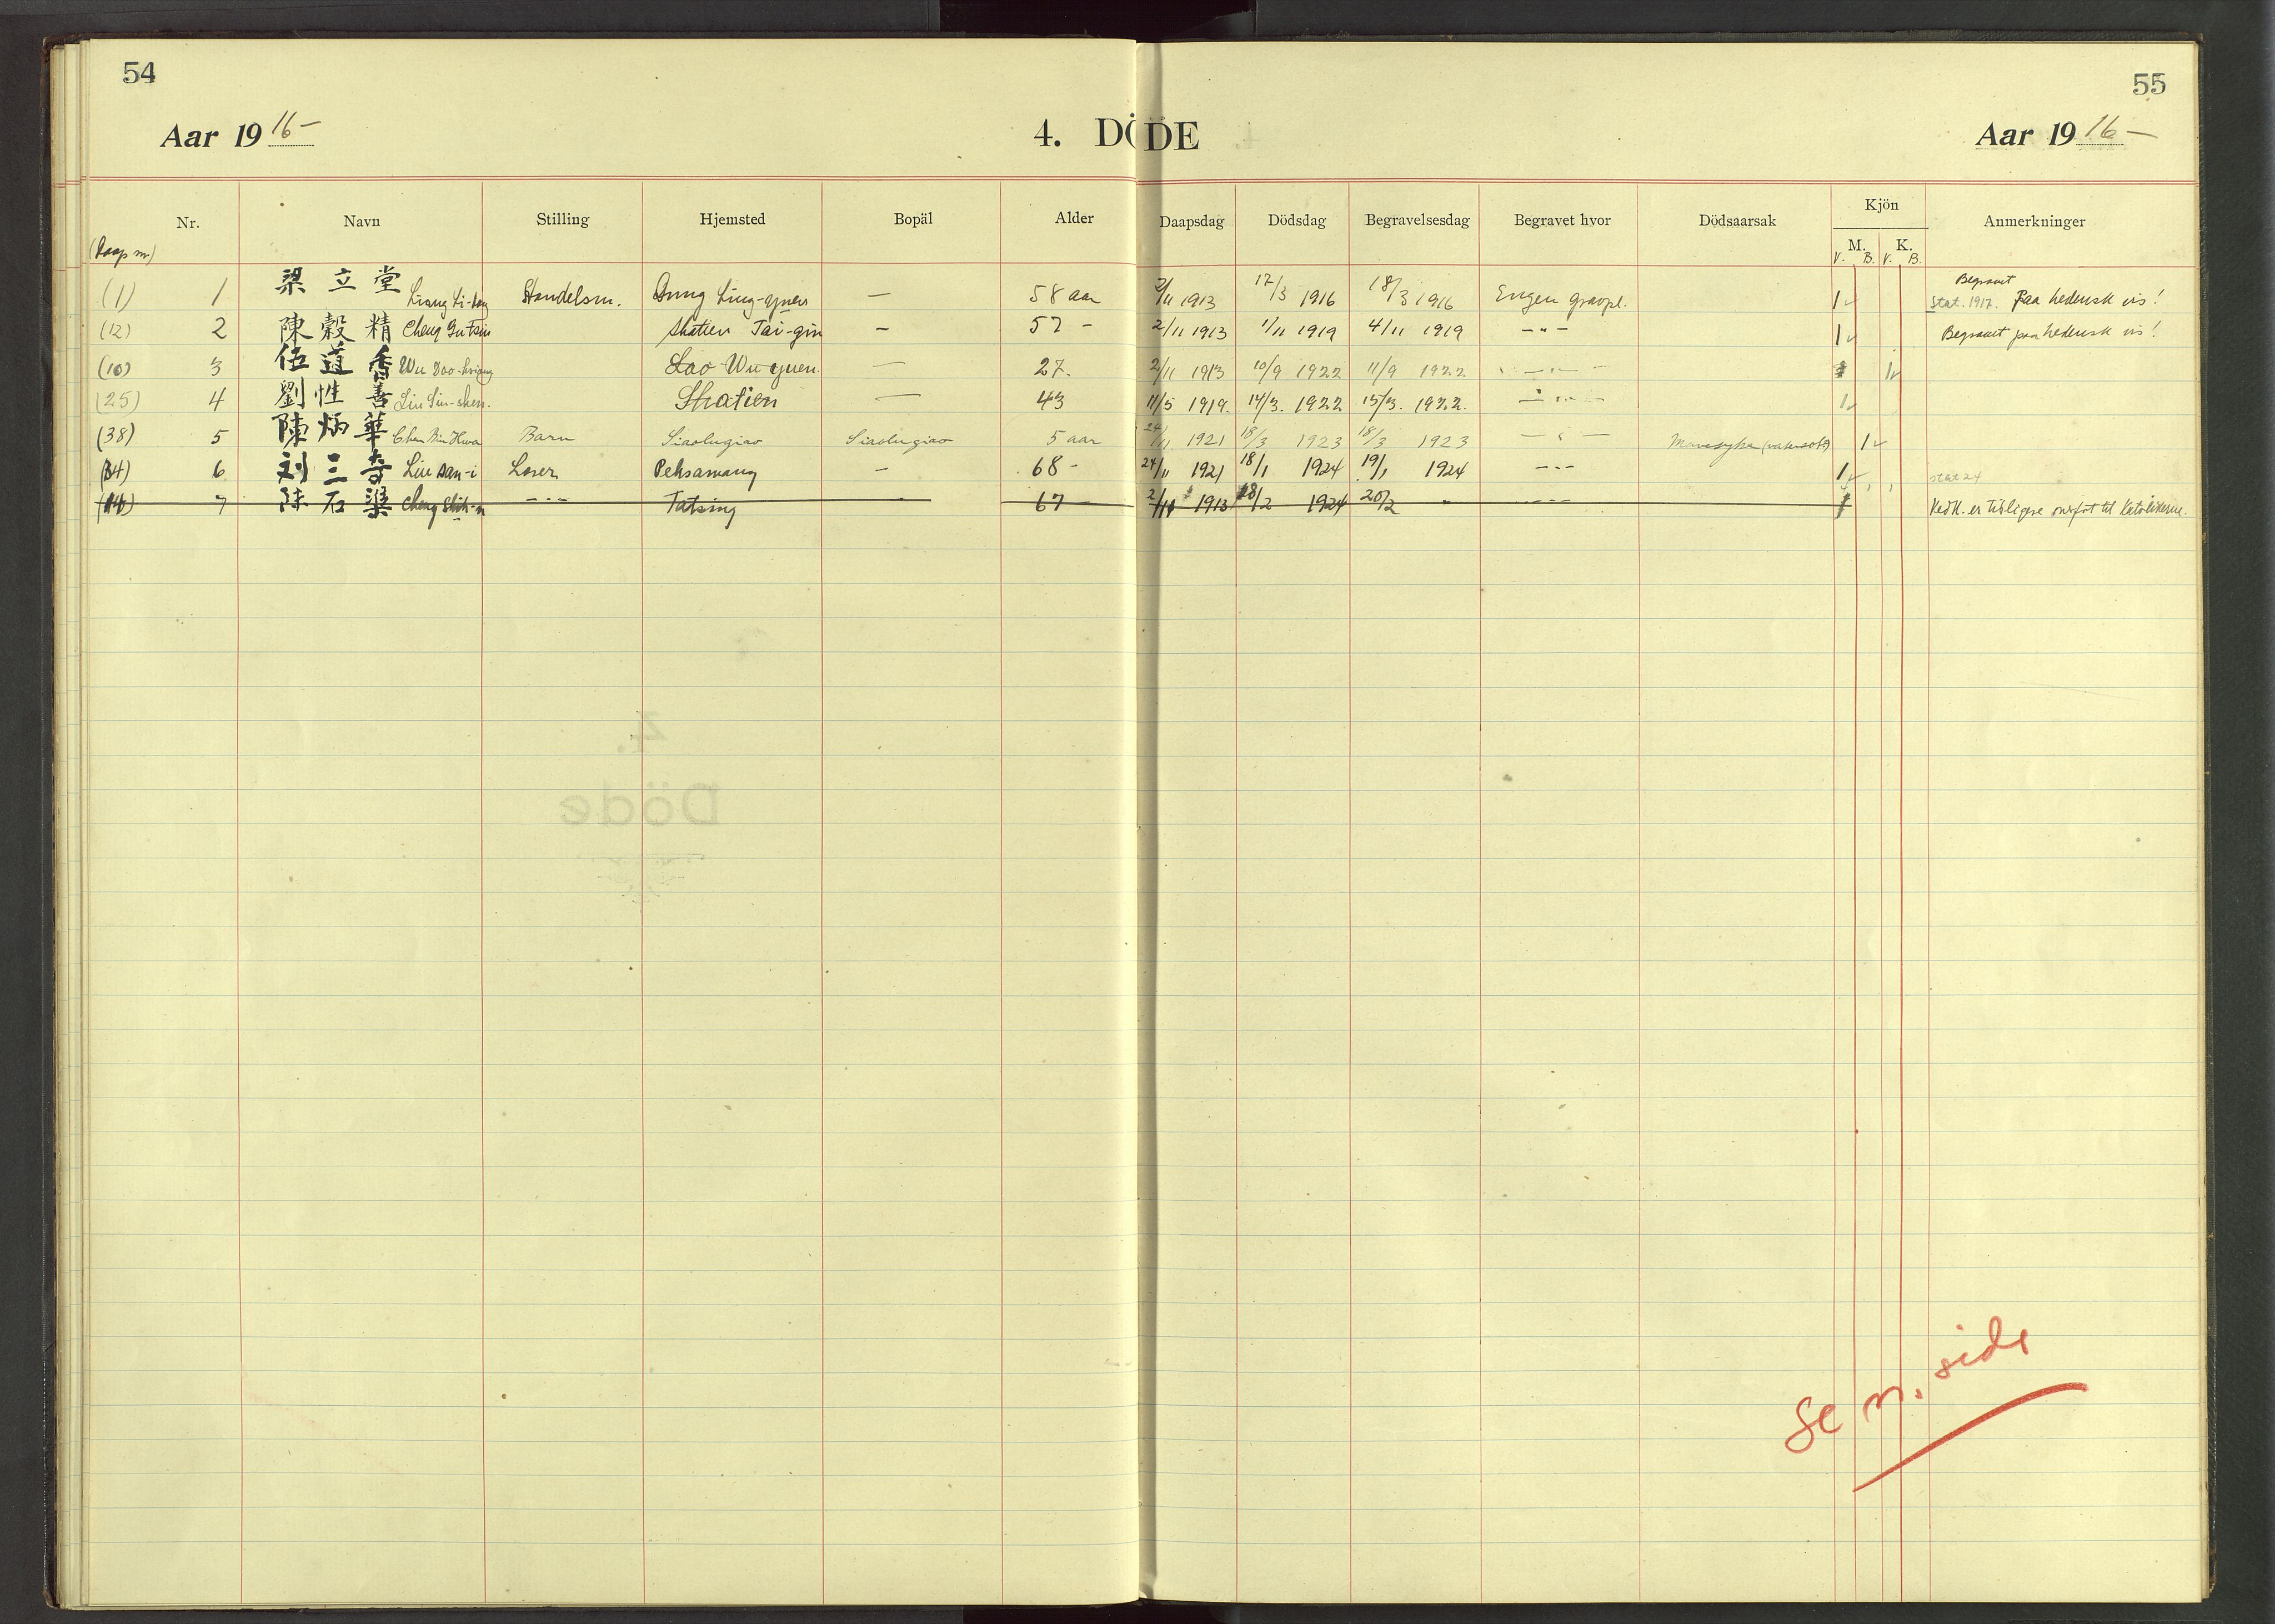 54
55
Aar 1916-
4. DÖDE
Aar 1916-
Nr. Navn Stilling Hjemsted Bopäl Alder Daapsdag Dödsdag Begravelsesdag Begravet hvor Dödsaarsak Kjön Anmerkninger
(Daap nr) M. K.
V. B. V. B.
Begravet
(1) 1 梁立堂 Liang Li-tang Handelsm. Ling-yuen — 58 aar 2/11 1913 17/3 1916 18/3 1916 Engen gravpl. 1 Stat. 1917. Paa hedensk vis!
(12) 2 陳穀精 Cheng Gu Tsin Shatien Tai-gin - 57 - 2/11 1913 1/11 1919 4/11 1919 -"- 1 Begravet paa hedensk vis!
(10) 3 伍道香 Wu Dao-hsiang Lao Wu yuen. — 27. 2/11 1913 10/9 1922 11/9 1922 -"- 1
(25) 4 劉性善 Liu Sin-shen. Shatien — 43 11/5 1919. 14/3. 1922 15/3. 1922. -"- 1
(38) 5 陳炳華 Chen Bin Hwa Barn Siaolugiao Siaolugiao 5 aar 24/11 1921 18/3 1923 18/3 1923 -"- 1
(34) 6 刘三奇 Liu San-i Löser Pehsamang - 68 - 24/11 1921 18/1 1924 19/1 1924 -"- 1 stat 24
(14) 7 陳石梁 Cheng Shih- -"- Tatsing 67 2/11 1913 18/2 1924 20/2 " -"- 1 Vedk. er tidligere til katolikerne.
4.
Döde
Se n. side